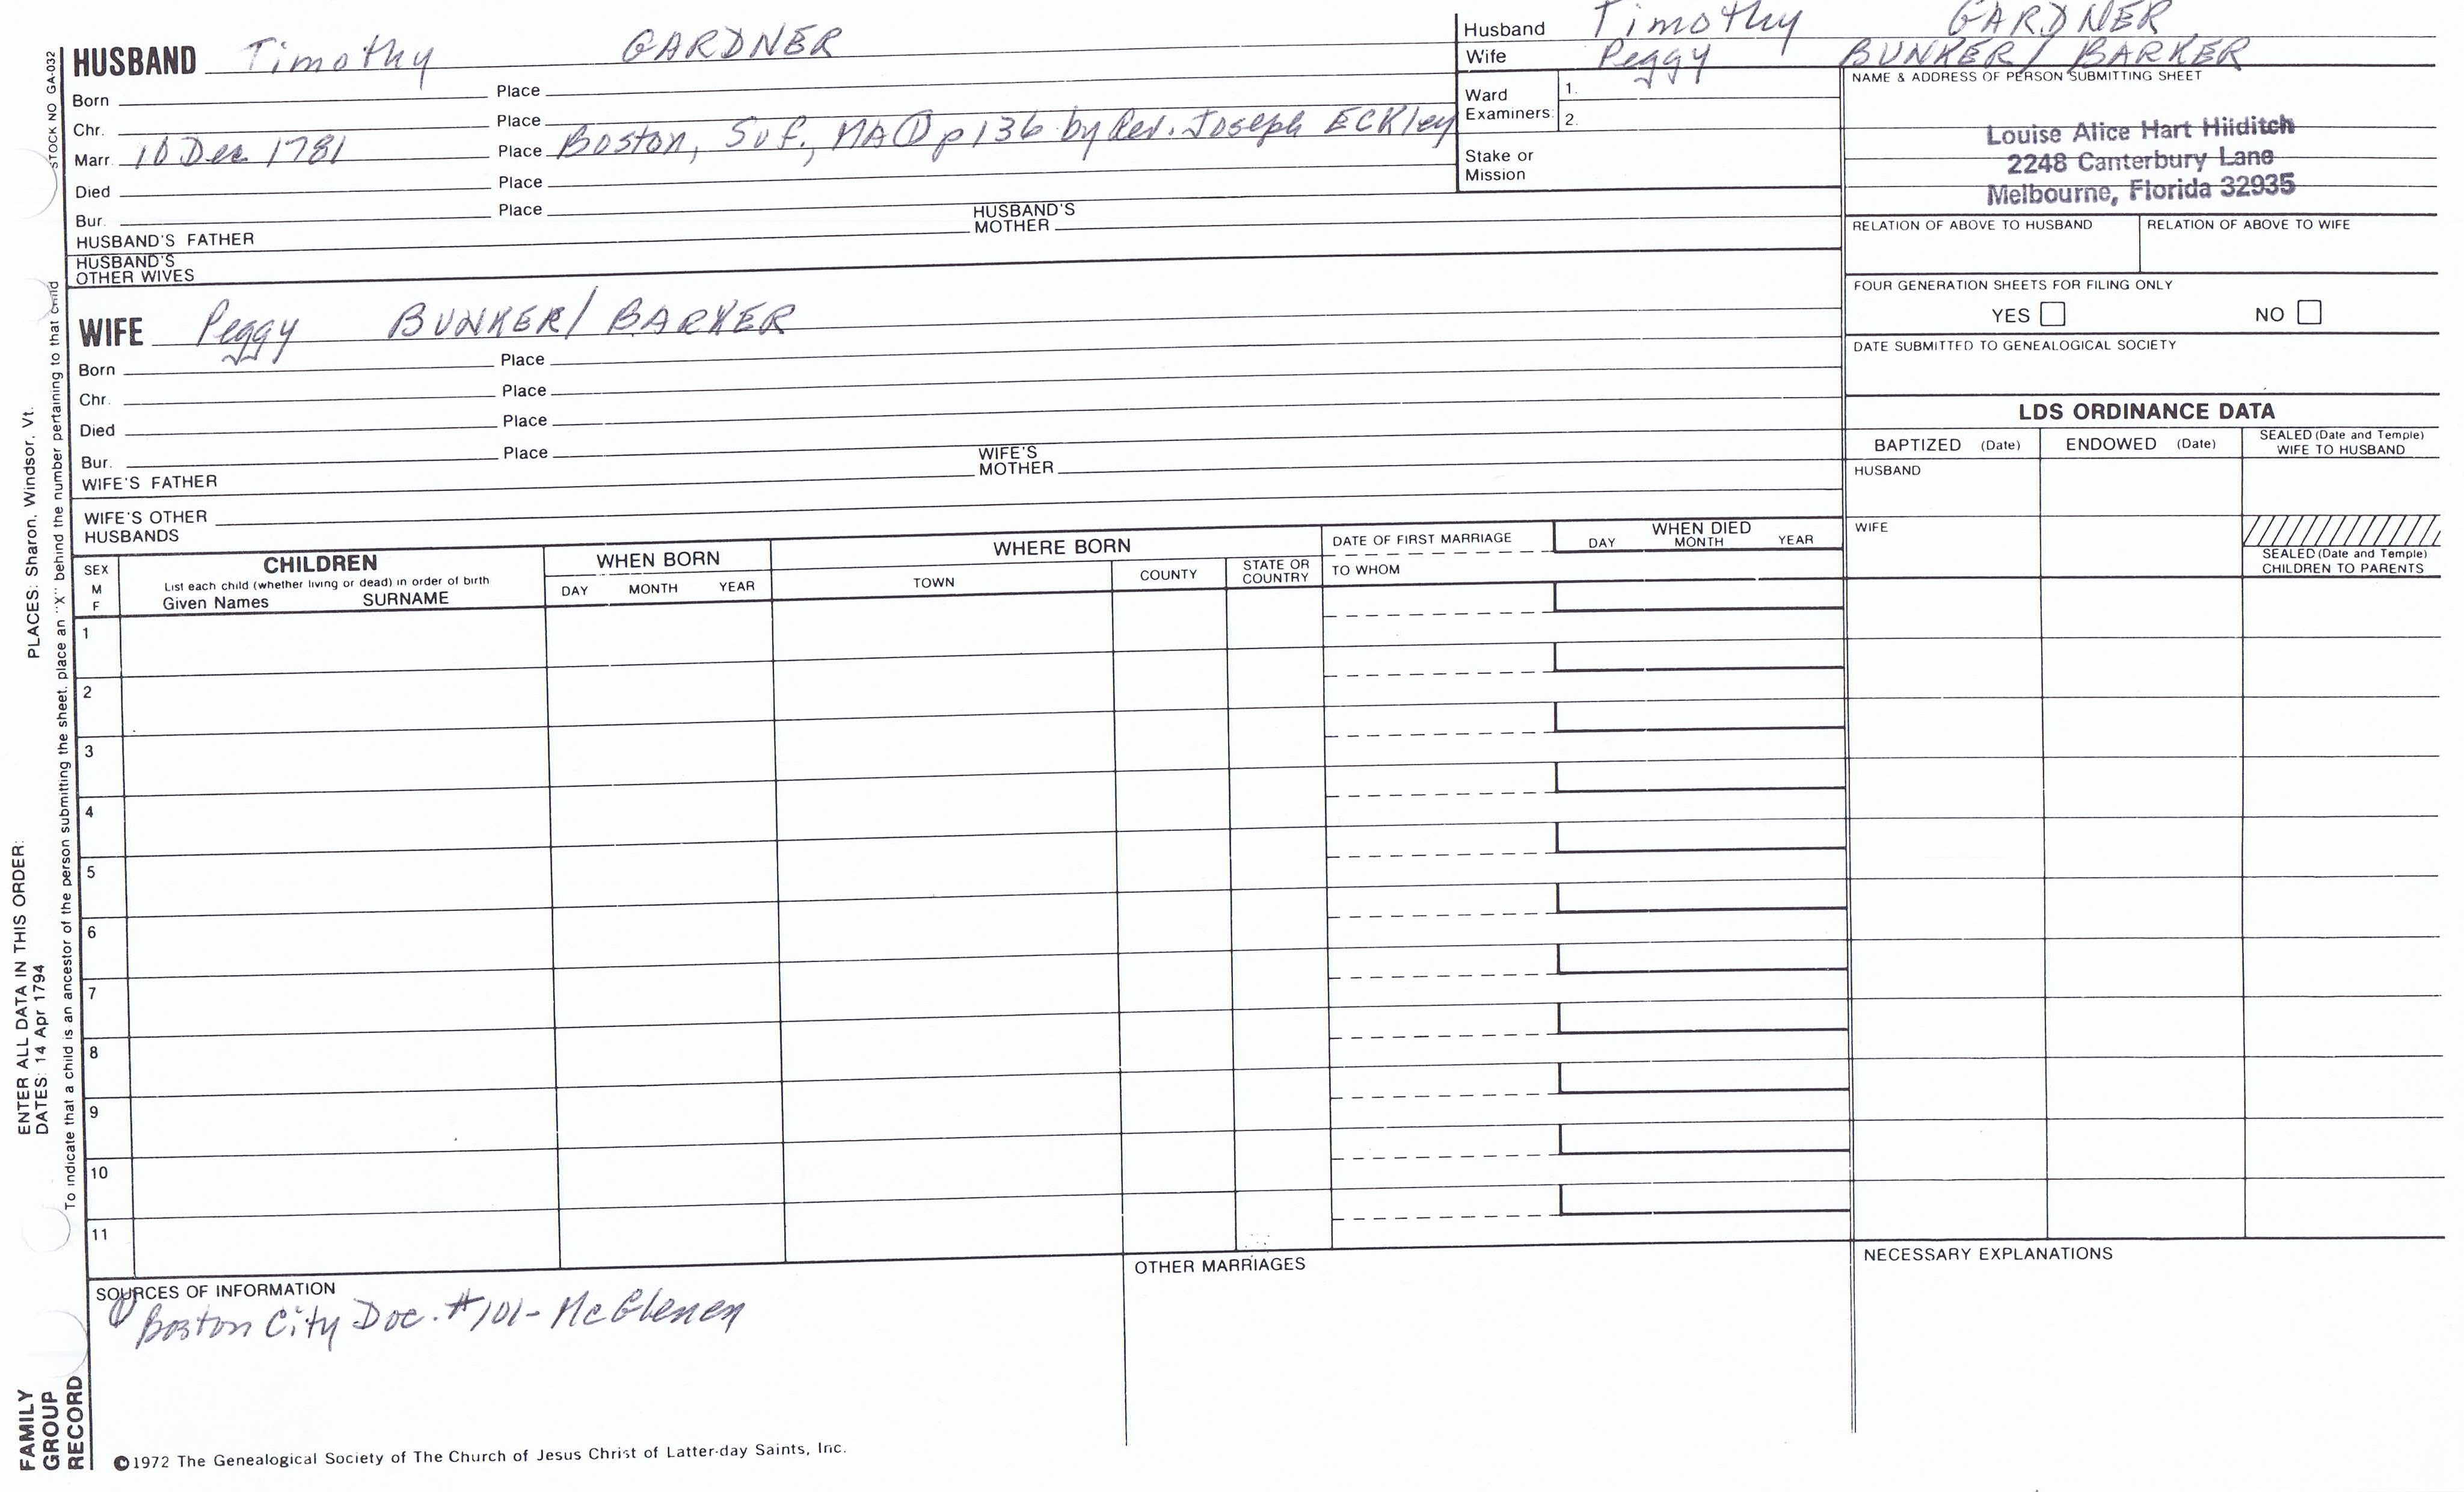 HUSBAND Timothy GARDNER
Born Place
Chr. Place
Marr. 10 Dec 1781 Place Boston, Suf., MA ① p 136 by Rev. Joseph ECKley
Died Place
Bur. Place
HUSBAND'S FATHER HUSBAND'S MOTHER
HUSBAND'S
OTHER WIVES
WIFE Peggy BUNKER/ BARKER
Born Place
Chr. Place
Died Place
Bur. Place
WIFE'S FATHER WIFE'S MOTHER
WIFE'S OTHER
HUSBANDS
Husband Timothy GARDNER
Wife Peggy BUNKER/ BARKER
Ward
Examiners: 1.
2.
Stake or
Mission
NAME & ADDRESS OF PERSON SUBMITTING SHEET
Louise Alice Hart Hilditch
2248 Canterbury Lane
Melbourne, Florida 32935
RELATION OF ABOVE TO HUSBAND RELATION OF ABOVE TO WIFE
FOUR GENERATION SHEETS FOR FILING ONLY
YES NO
DATE SUBMITTED TO GENEALOGICAL SOCIETY
LDS ORDINANCE DATA
BAPTIZED (Date) ENDOWED (Date) SEALED (Date and Temple)
WIFE TO HUSBAND
HUSBAND
WIFE
SEALED (Date and Temple)
CHILDREN TO PARENTS
SEX
M
F
CHILDREN
List each child (whether living or dead) in order of birth
Given Names SURNAME
WHEN BORN
DAY MONTH YEAR
WHERE BORN
TOWN COUNTY STATE OR
COUNTRY
DATE OF FIRST MARRIAGE
TO WHOM
WHEN DIED
DAY MONTH YEAR
1
2
3
4
5
6
7
8
9
10
11
SOURCES OF INFORMATION
① Boston City Doc. #101- McGlenen
OTHER MARRIAGES
NECESSARY EXPLANATIONS
©1972 The Genealogical Society of The Church of Jesus Christ of Latter-day Saints, Inc.
STOCK NO GA-032
To indicate that a child is an ancestor of the person submitting the sheet, place an "X" behind the number pertaining to that child
ENTER ALL DATA IN THIS ORDER:
DATES: 14 Apr 1794
PLACES: Sharon, Windsor, Vt.
FAMILY
GROUP
RECORD